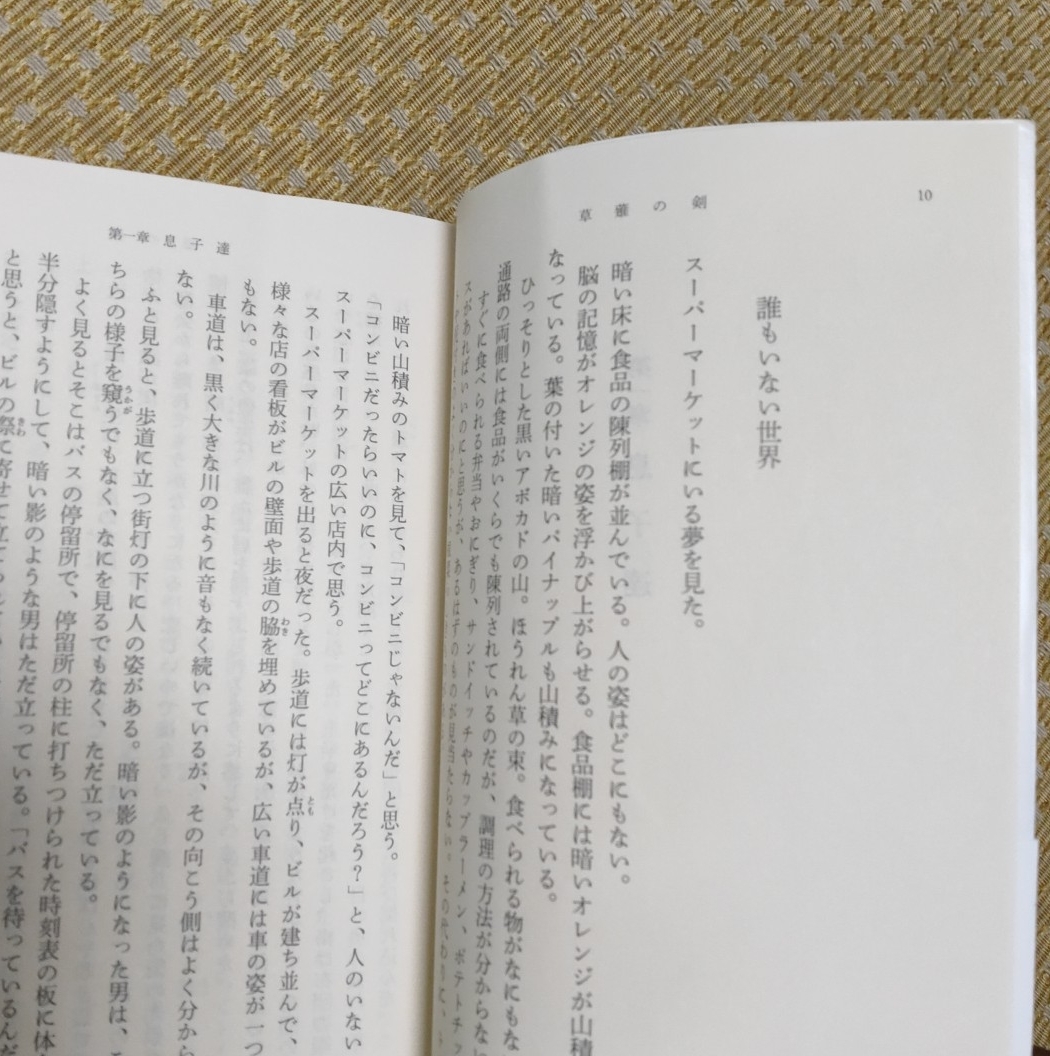 10
草薙の剣
誰もいない世界
スーパーマーケットにいる夢を見た。
暗い床に食品の陳列棚が並んでいる。人の姿はどこにもない。
脳の記憶がオレンジの姿を浮かび上がらせる。食品棚には暗いオレンジが山積
なっている。葉の付いた暗いパイナップルも山積みになっている。
ひっそりとした黒いアボカドの山。ほうれん草の束。食べられる物がなにもな
通路の両側には食品がいくらでも陳列されているのだが、調理の方法が分からない
すぐに食べられる弁当やおにぎり、サンドイッチやカップラーメン、ポテトチッ
スがあればいいのにと思うが、あるはずのものが見当たらない。その代わりに、
第一章 息子達
暗い山積みのトマトを見て、「コンビニじゃないんだ」と思う。
「コンビニだったらいいのに、コンビニってどこにあるんだろう？」と、人のいない
スーパーマーケットの広い店内で思う。
スーパーマーケットを出ると夜だった。歩道には灯が点り、ビルが建ち並んで、
様々な店の看板がビルの壁面や歩道の脇を埋めているが、広い車道には車の姿が一つ
もない。
車道は、黒く大きな川のように音もなく続いているが、その向こう側はよく分から
ない。
ふと見ると、歩道に立つ街灯の下に人の姿がある。暗い影のようになった男は、こ
ちらの様子を窺うでもなく、なにを見るでもなく、ただ立っている。
よく見るとそこはバスの停留所で、停留所の柱に打ちつけられた時刻表の板に体
半分隠すようにして、暗い影のような男はただ立っている。「バスを待っているんだ
と思うと、ビルの際に寄せて立て